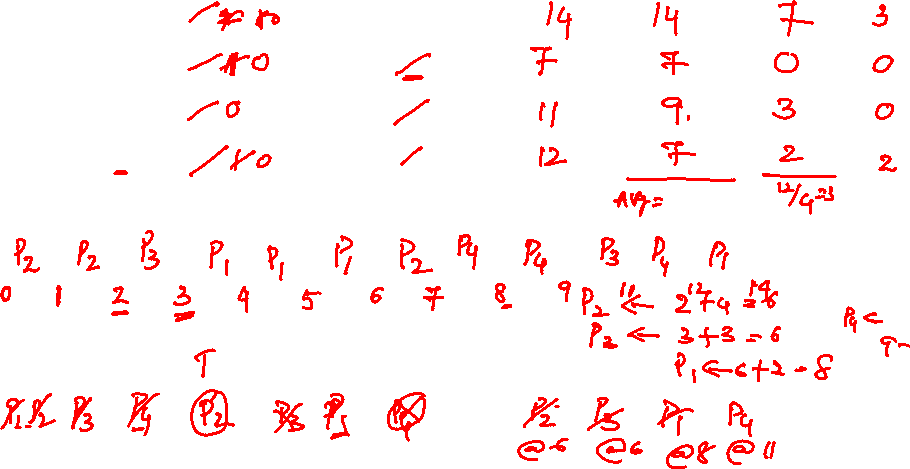 14 14 7 3
0 7 7 0 0
0 11 9. 3 0
0 12 7 2 2
Avg= 12/4=3
P2 P2 P3 P1 P1 P1 P2 P4 P4 P3 P4 P1
0 1 2 3 4 5 6 7 8 9 11 12 14
P2 ← 2+4=6
P3 ← 3+3=6 P4 ←
P1 ← 6+2=8 9
T
P1 P2 P3 P4 P2 P3 P1 P4 P2 P3 P1 P4
@6 @6 @8 @11